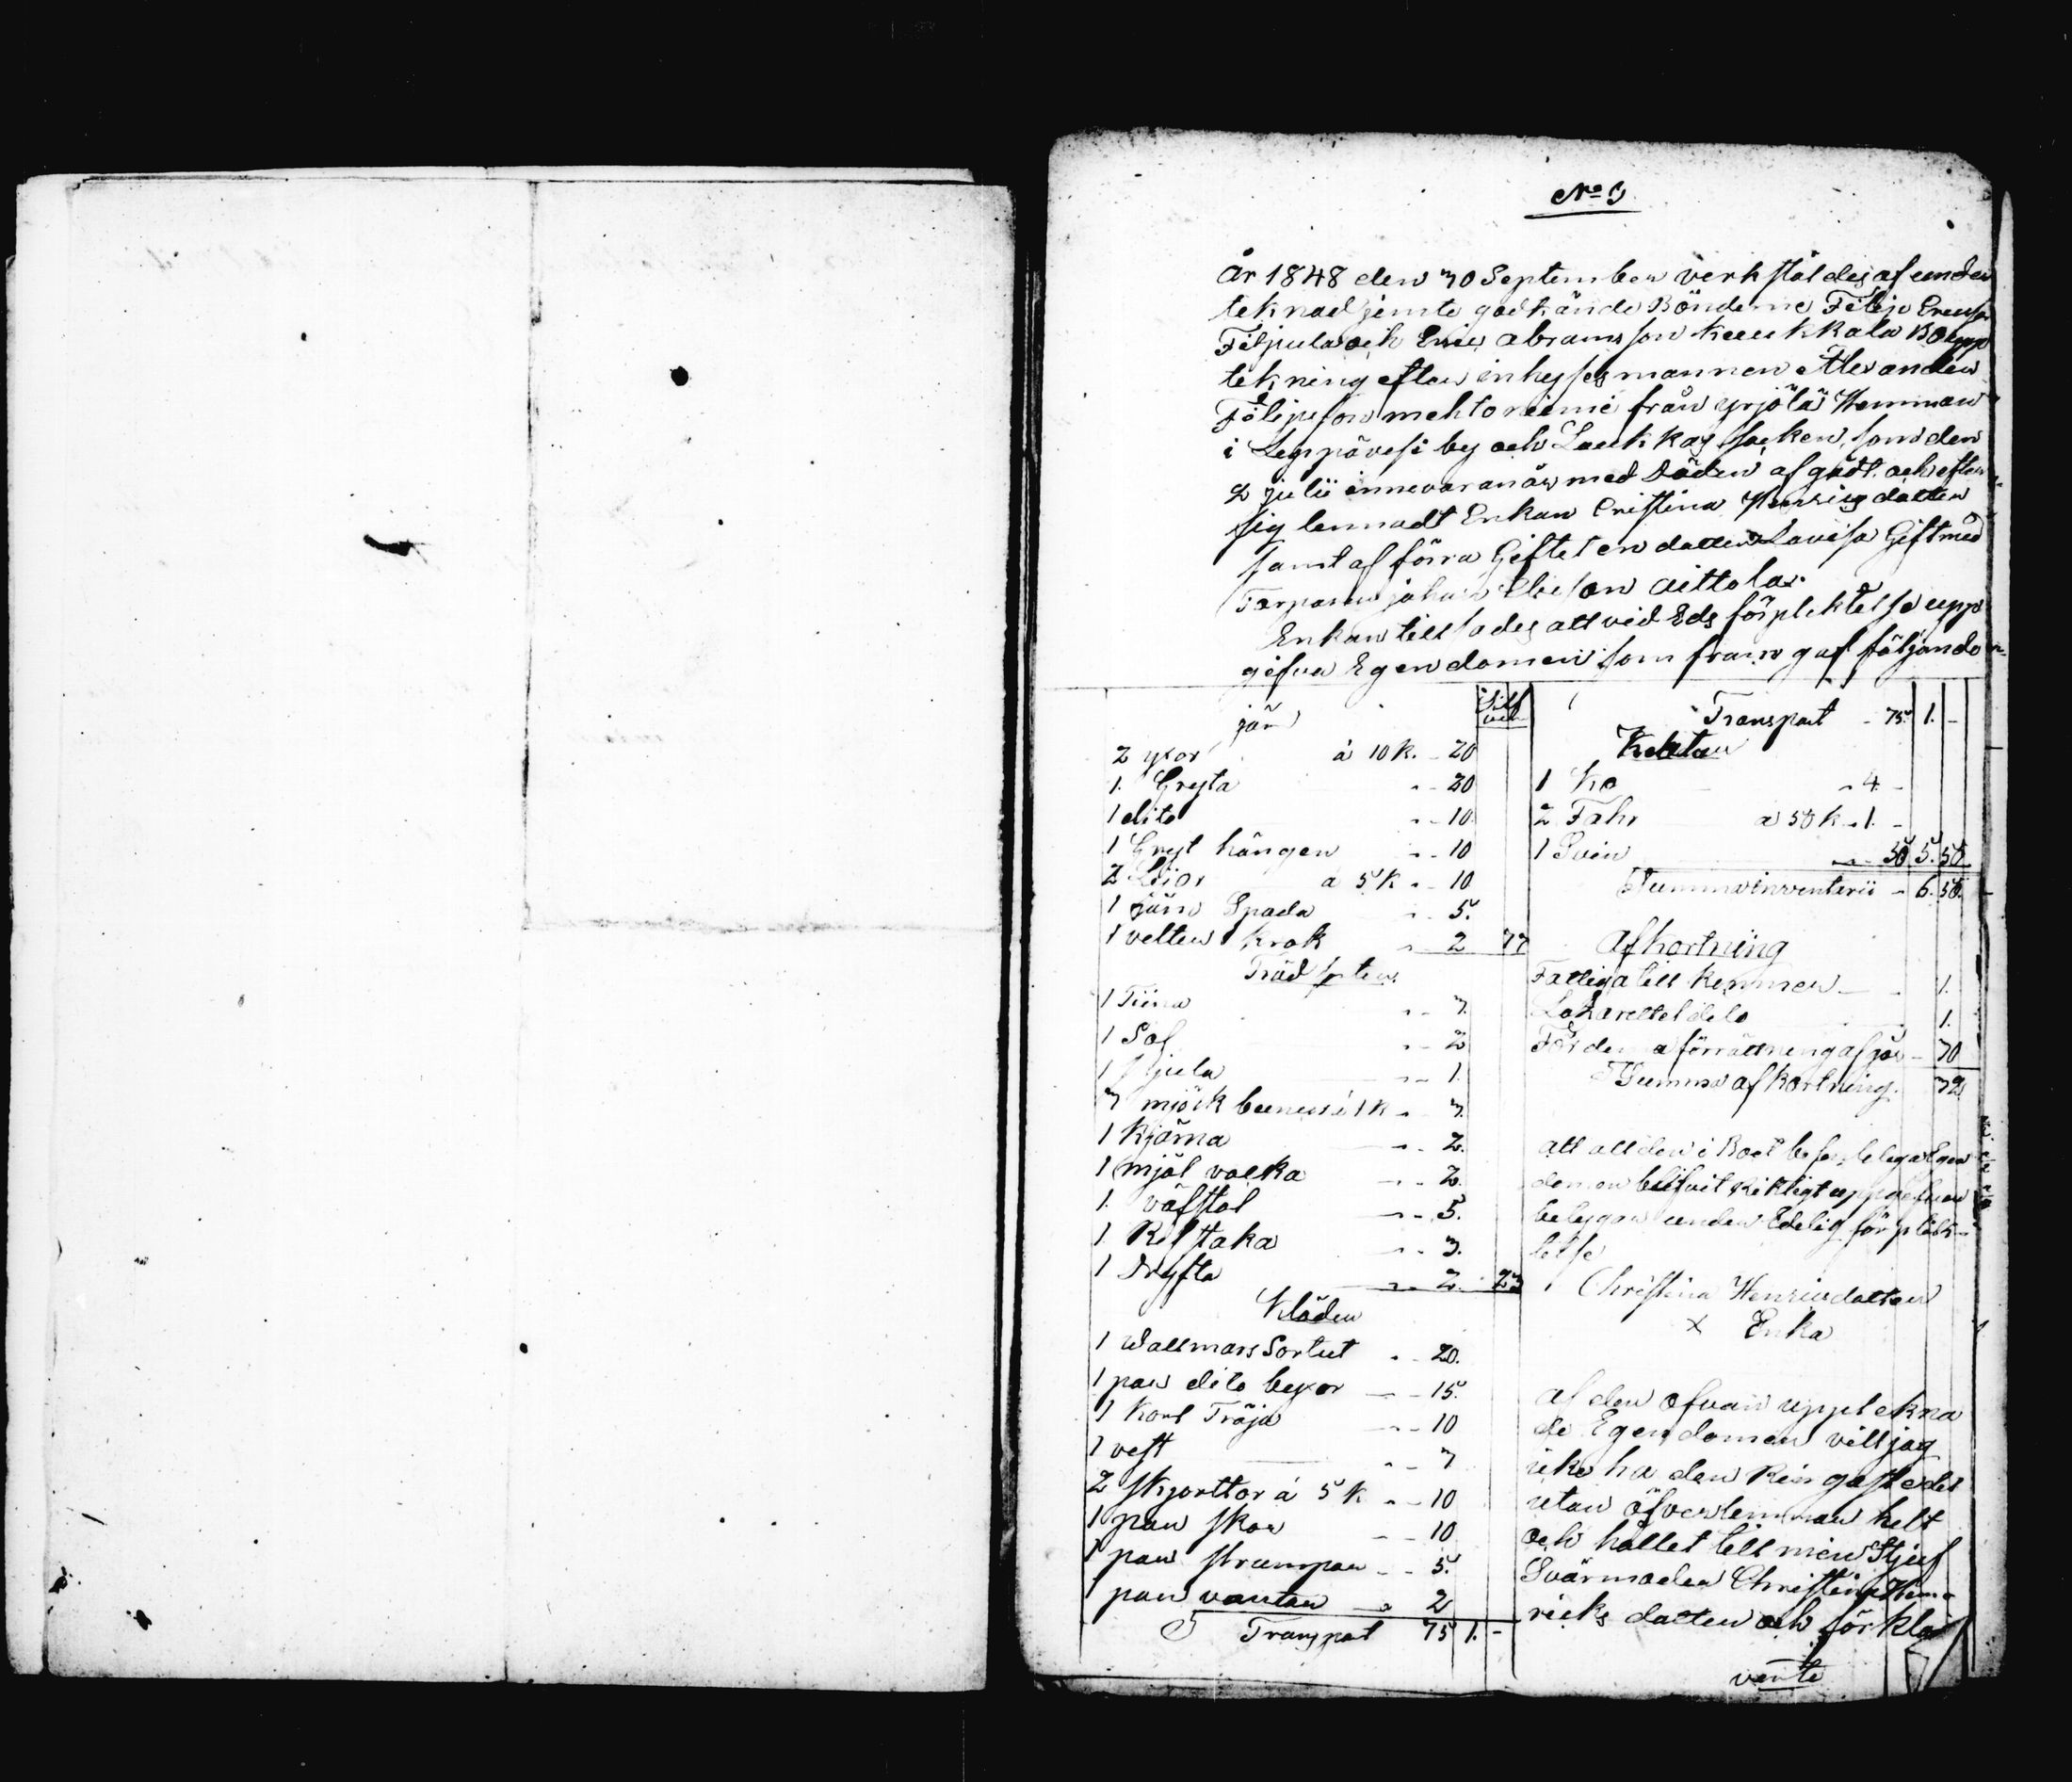 No 9
År 1848 den 30 September verkstäldes af under
teknad jemte godkände Bönderne Filip Ericsson
Filpula och Eric abramsson Kuukkala Boupp
tekning efter inhyses mannen Alexander
Filipsson mehtoniemi från yrjölä Hemman
i Leppävesi by och Laukkas socken, som den
2 julii innevaran år med Döden afgådt och efter
sig lemnadt Enkan Cristina Henrics dotter
samt af förra Giftet en dotter Lovisa Gift med
Torparen johan Elieson Aittola.
Enkan tillsades att vid Eds förpliktelse upp
gifva Egendomen som fram gaf följande
järn
2 yxor à 10 k. - 20
1. Gryta - 20
1 dito - 10.
1 Gryt hängen - 10
2 Liior a 5 k - 10
1 järn Spada - 5.
1 velten krok - 2 77
Träd saker
1 Tiina - 3.
1 Sof - 2
1 Skjula - 1.
3 mjölk bunnar à 1 k - 3.
1 Kjärna - 2.
1 mjöl vacka - 2.
1. väfstol - 5.
1 Rol staka - 3.
1 Dryfta - 2. 23
Kläder
1 Wallmars Sortut - 20.
1 par dito byxor - 15.
1 Kort Tröja - 10
1 vest - 3
2 skjorttor à 5 k - 10
1 par skor - 10
1 par strumpor - 5.
1 par vantar - 2
Transport 75 1. -
Transport - 75. 1. -
Kreatur
1 Ko - 4 -
2 Fåhr a 50 k - 1. -
1 Svin - 50 5. 50
Summa inventarii - 6. 50.
Afkortning
Fattiga till kommer - 1.
Lazarettet dito 1.
För denna förrättning afgår - 30
Summa afkortning. 32.
att all den i Boet befinteliga Egen
domen blifvit Riktigt uppgifven
betygar under Edelig förplick-
telse
Christina Henricsdotter
x Enka
af den ofvan upptekna
de Egendomen vill jag
icke ha den Ringaste del
utan öfverlemnar helt
och hållet till min Stjuf
Svärmoder Christina Hen-
ricks dotter och förkla
vänte